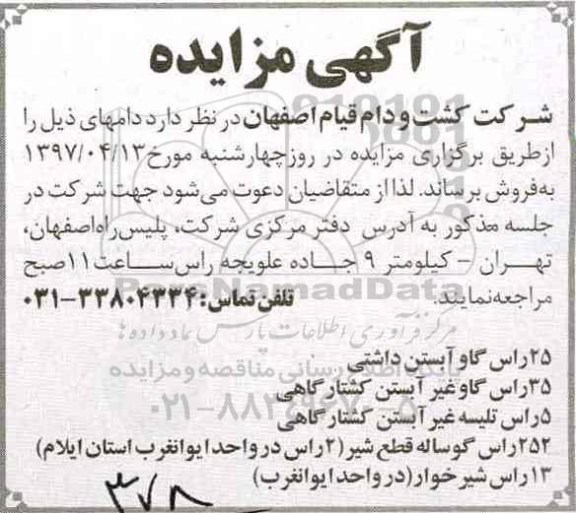 آگهی مزایده
شرکت کشت و دام قیام اصفهان در نظر دارد دامهای ذیل را
ازطریق برگزاری مزایده در روز چهارشنبه مورخ ۱۳۹۷/۰۴/۱۳
به‌فروش برساند. لذا از متقاضیان دعوت می‌شود جهت شرکت در
جلسه مذکور به آدرس دفتر مرکزی شرکت، پلیس‌راه‌اصفهان،
تهران - کیلومتر ۹ جاده علویجه راس‌ساعت ۱۱صبح
مراجعه‌نمایند. تلفن تماس: ۳۳۸۰۴۳۳۴-۰۳۱
ParsNamadData
مرکز فرآوری اطلاعات پارس نماد داده ها
۲۵راس گاو آبستن داشتی
پایگاه اطلاع رسانی مناقصه و مزایده
۳۵راس گاوغیر آبستن کشتارگاهی
۵راس تلیسه غیر آبستن کشتارگاهی
۲۵۲راس گوساله قطع شیر (۲راس در واحد ایوانغرب استان ایلام)
۱۳راس شیرخوار(در واحد ایوانغرب)
۳۷۸